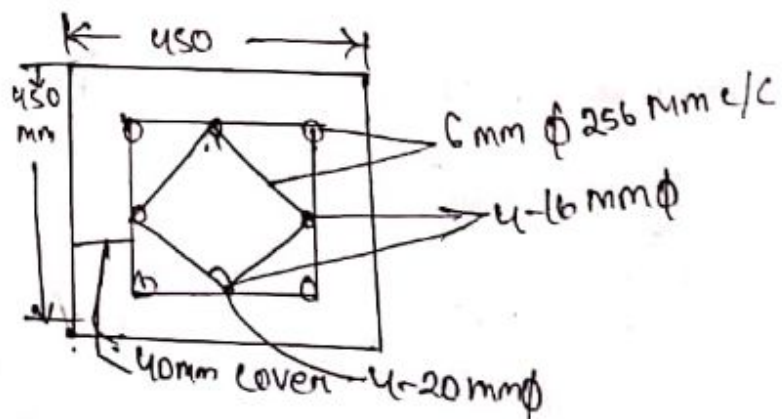 450
450
mm
6 mm ϕ 256 mm c/c
4-16 mmϕ
40mm cover
4-20mmϕ